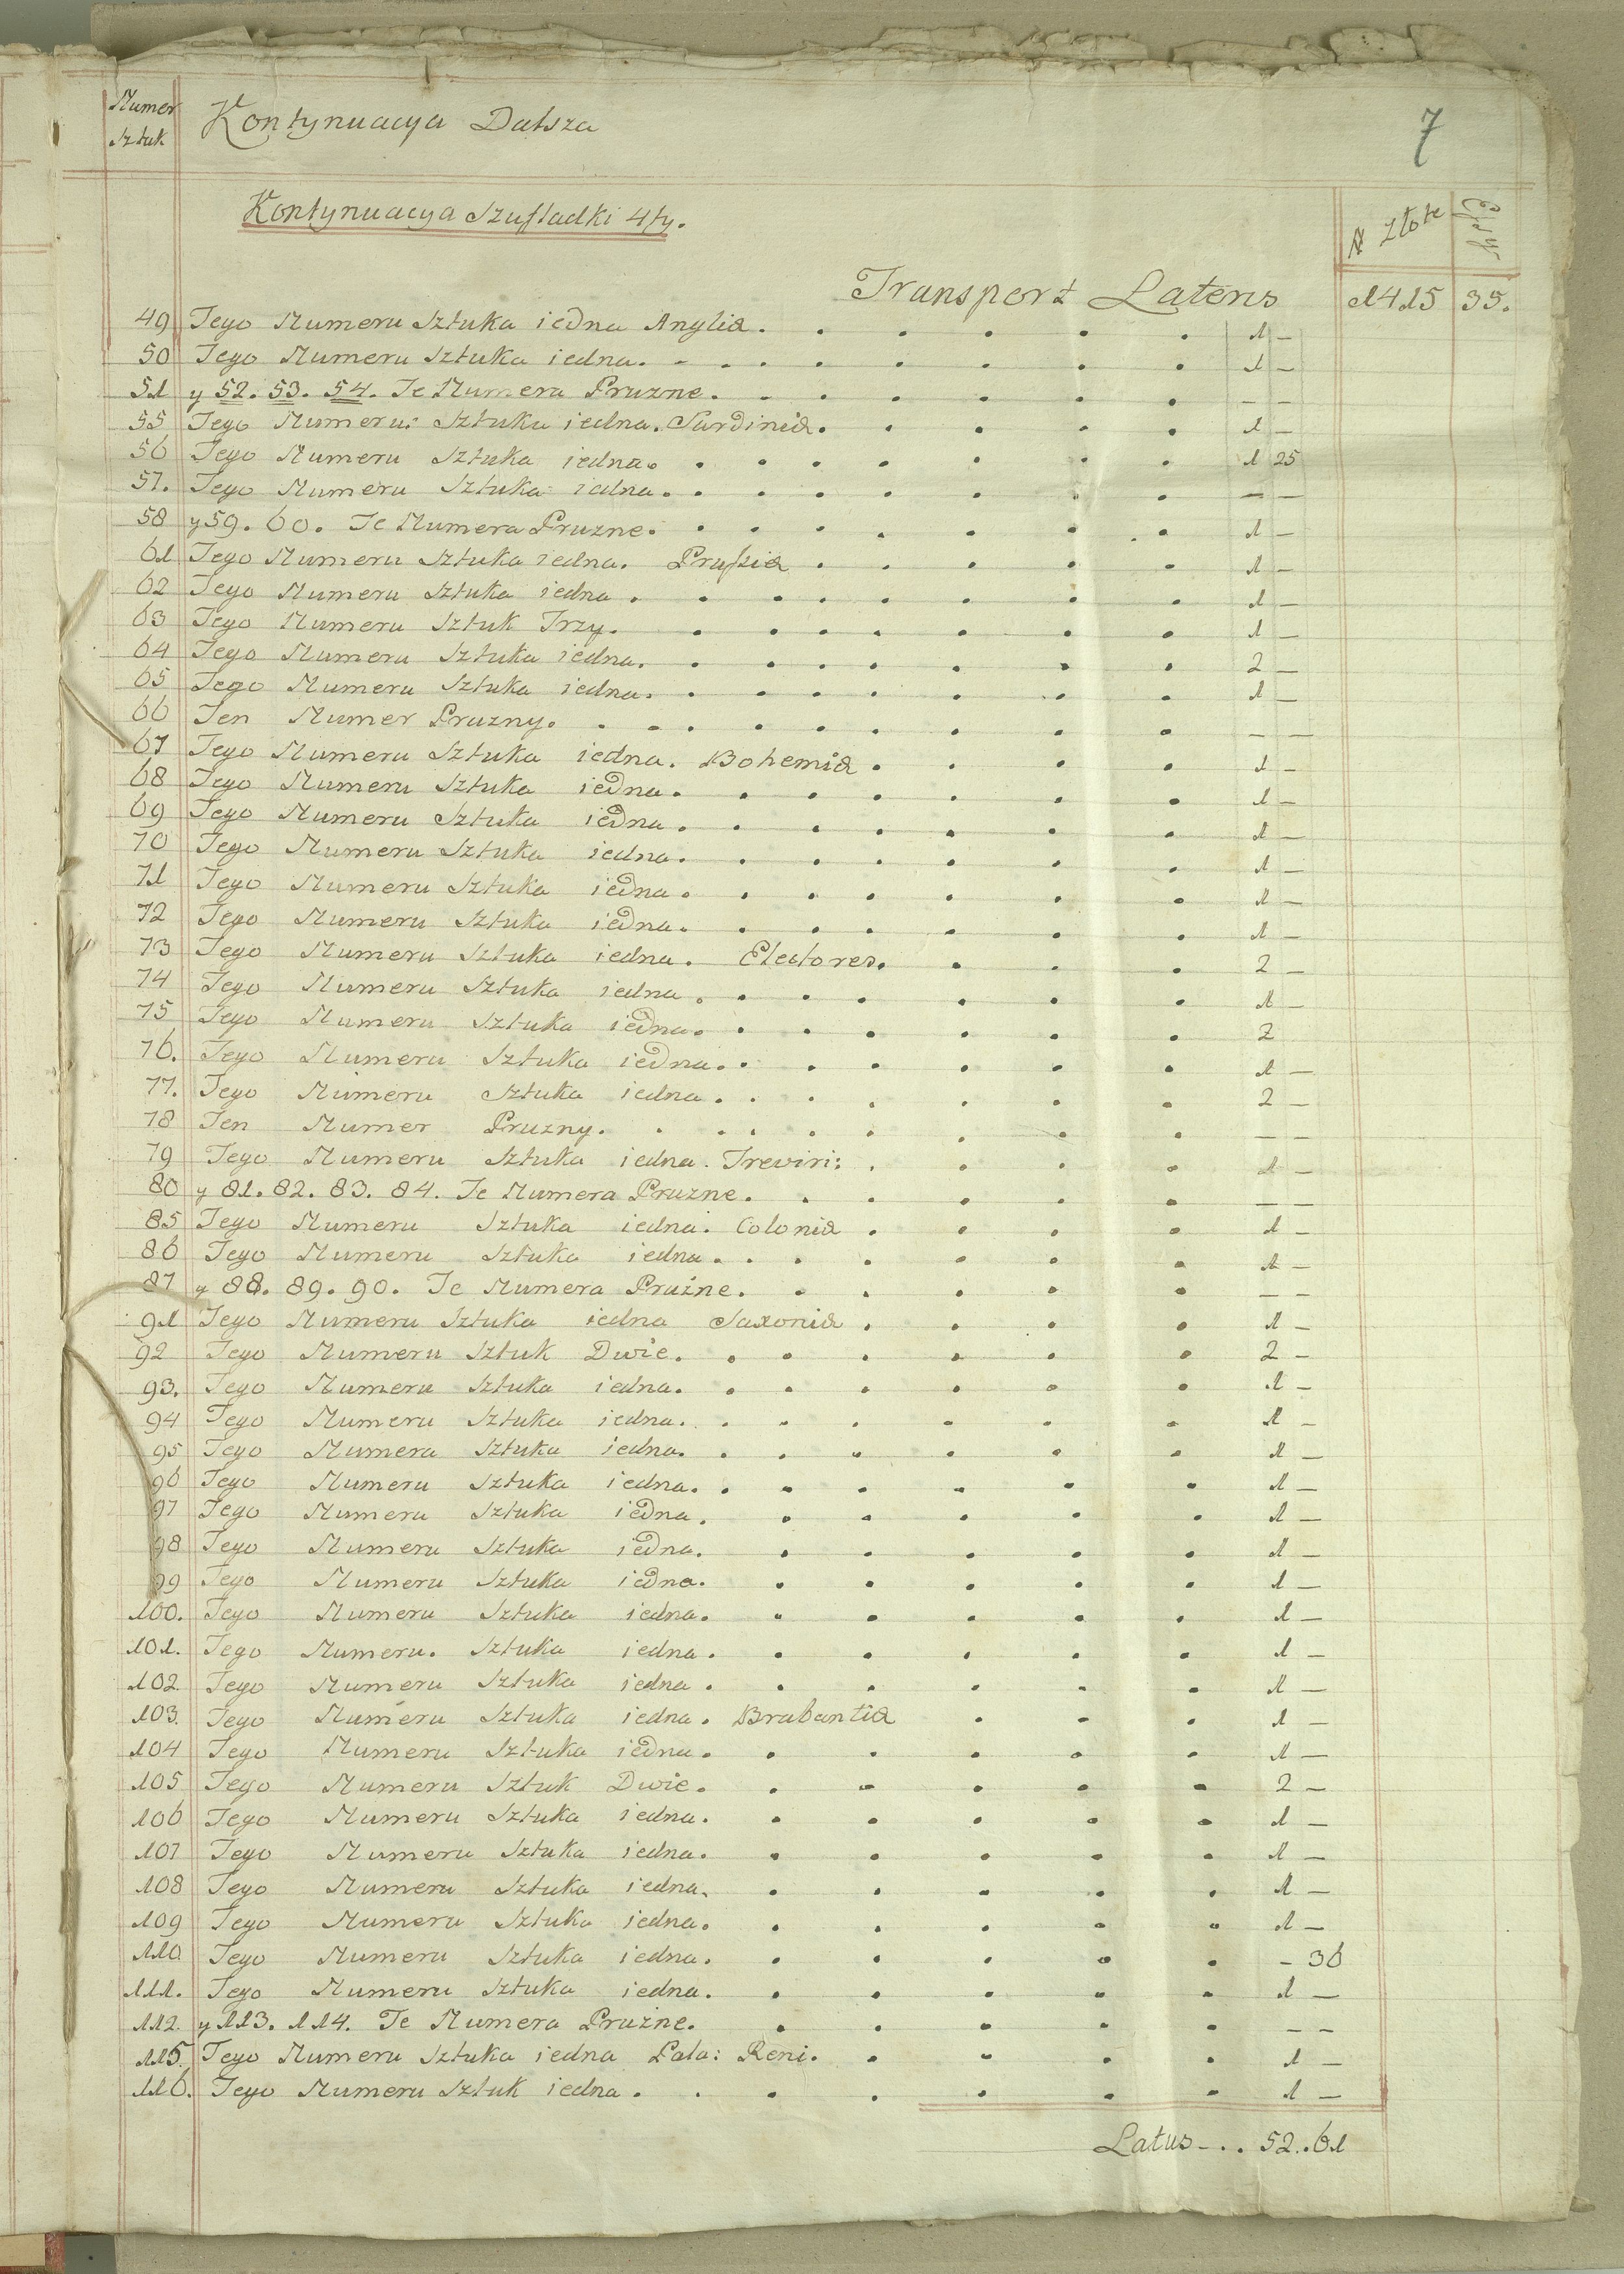 Numer Sztuk
Kontynuacya Dalsza
7
Kontynuacya Szufladki 4ty.
# Złote
Transport Lateris 1415 35.
49 Tego Numeru Sztuka iedna Anglia. 1 —
50 Tego Numeru Sztuka iedna. 1 —
51 y 52. 53. 54. Te Numera Pruzne. — —
55 Tego Numeru: Sztuka iedna. Sardinia. 1 —
56 Tego Numeru Sztuka iedna. 1 25
57. Tego Numeru Sztuka iedna. — —
58 y 59. 60. Te Numera Pruzne. 1 —
61 Tego Numeru Sztuka iedna. Prussia. 1 —
62 Tego Numeru Sztuka iedna. 1 —
63 Tego Numeru Sztuk Trzy. 1 —
64 Tego Numeru Sztuka iedna. 2 —
65 Tego Numeru Sztuka iedna. 1 —
66 Ten Numer Pruzny. — —
67 Tego Numeru Sztuka iedna. Bohemia. 1 —
68 Tego Numeru Sztuka iedna. 1 —
69 Tego Numeru Sztuka iedna. 1 —
70 Tego Numeru Sztuka iedna. 1 —
71 Tego Numeru Sztuka iedna. 1 —
72 Tego Numeru Sztuka iedna. 1 —
73 Tego Numeru Sztuka iedna. Electores. 2 —
74 Tego Numeru Sztuka iedna. 1 —
75 Tego Numeru Sztuka iedna. 2
76. Tego Numeru Sztuka iedna. 1 —
77. Tego Numeru Sztuka iedna. 2 —
78 Ten Numer Pruzny. — —
79 Tego Numeru Sztuka iedna. Treviri: 1 —
80 y 81. 82. 83. 84. Te Numera Pruzne. — —
85 Tego Numeru Sztuka iedna. Colonia. 1 —
86 Tego Numeru Sztuka iedna. 1 —
87 y 88. 89. 90. Te Numera Prużne. — —
91 Tego Numeru Sztuka iedna Saxonia. 1 —
92 Tego Numeru Sztuk Dwie. 2 —
93. Tego Numeru Sztuka iedna. 1 —
94 Tego Numeru Sztuka iedna. 1 —
95 Tego Numera Sztuka iedna. 1 —
96 Tego Numeru Sztuka iedna. 1 —
97 Tego Numeru Sztuka iedna. 1 —
98 Tego Numeru Sztuka iedna. 1 —
99 Tego Numeru Sztuka iedna. 1 —
100. Tego Numeru Sztuka iedna. 1 —
101. Tego Numeru. Sztuka iedna. 1 —
102. Tego Numeru Sztuka iedna. 1 —
103. Tego Numeru Sztuka iedna. Brabantia 1 —
104 Tego Numeru Sztuka iedna. 1 —
105 Tego Numeru Sztuk Dwie. 2 —
106 Tego Numeru Sztuka iedna. 1 —
107 Tego Numeru Sztuka iedna. 1 —
108 Tego Numeru Sztuka iedna. 1 —
109 Tego Numeru Sztuka iedna. 1 —
110 Tego Numeru Sztuka iedna. - 36
111. Tego Numeru Sztuka iedna. 1 —
112. y 113. 114. Te Numera Prużne. — —
115. Tego Numeru Sztuka iedna Pala: Reni. 1 —
116. Tego Numeru Sztuk iedna. 1 —
Latus -.. 52..61